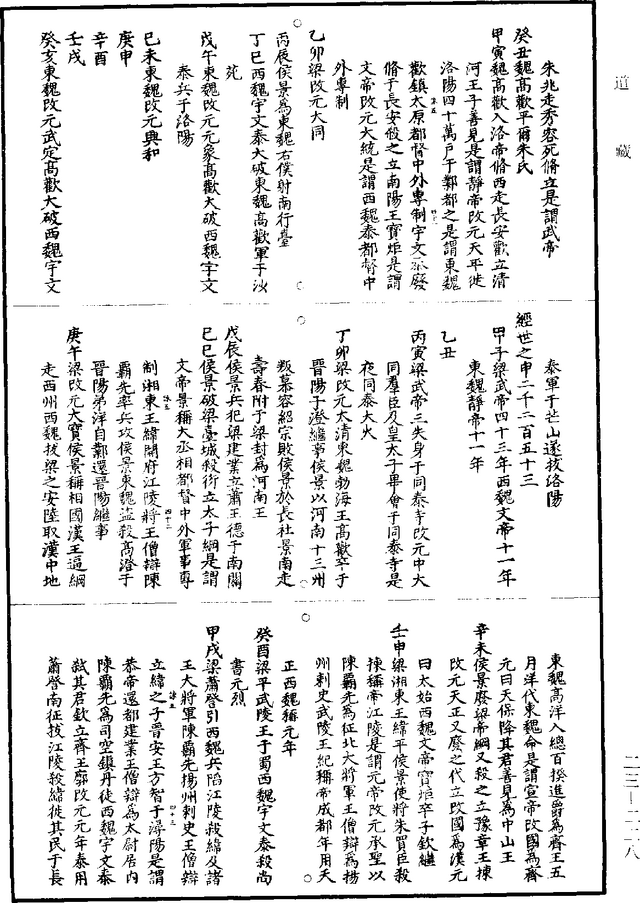 道藏
朱兆走秀容死脩立是謂武帝
癸丑魏高歡平爾朱氏
甲寅魏高歡入洛帝脩西走長安歡立清
河王子善見是謂靜帝改元天平徙
洛陽四十萬戶于鄴都之是謂東魏
歡鎮太原都督中外專制宇文泰廢
脩于長安假之立南陽王寶炬是謂
文帝改元大統是謂西魏泰都督中
外專制
乙卯梁改元大同
丙辰侯景為東魏右僕射南行臺
丁巳西魏宇文泰大破東魏高歡軍于沙
苑
戊午東魏改元元象高歡大破西魏宇文
泰兵于洛陽
己未東魏改元興和
庚申
辛酉
壬戌
癸亥東魏改元武定高歡大破西魏宇文
泰軍于芒山遂拔洛陽
經世之申二千二百五十三
甲子梁武帝四十三年西魏文帝十一年
東魏靜帝十一年
乙丑
丙寅梁武帝三失身于同泰寺改元中大
同羣臣及皇太子畢會于同泰寺是
夜同泰大火
丁卯梁改元太清東魏勃海王高歡卒于
晉陽子澄繼事侯景以河南十三州
叛慕容紹宗敗侯景於長社景南走
壽春附于梁封為河南王
戊辰侯景兵犯梁建業立蕭王德于南闕
己巳侯景破梁臺城殺衍立太子綱是謂
文帝景稱大丞相都督中外軍事專
制湘東王繹開府江陵將王僧辯陳
霸先率兵攻侯景東魏盜殺高澄于
晉陽弟洋自鄴還晉陽繼事
庚午梁改元大寶侯景稱相國漢王逼綱
走西州西魏拔梁之安陸取漢中地
東魏高洋入總百揆進爵為齊王五
月洋代東魏命是謂宣帝改國為齊
元曰天保降其君善見為中山王
辛未侯景廢梁帝綱又殺之立豫章王棟
改元天正又廢之代立改國為漢元
曰太始西魏文帝寶炬卒子欽繼
壬申梁湘東王繹平侯景使將朱買臣殺
棟稱帝江陵是謂元帝改元承聖以
陳霸先為征北大將軍王僧辯為揚
州刺史武陵王紀稱帝成都年用天
正西魏稱元年
癸酉梁平武陵王于蜀西魏宇文泰殺尚
書元烈
甲戌梁蕭詧引西魏兵陷江陵殺繹及諸
王大將軍陳霸先揚州刺史王僧辯
立繹之子晉安王方智于潯陽是謂
恭帝還都建業王僧辯為太尉居內
陳霸先為司空鎮丹徒西魏宇文泰
弒其君欽立齊王廓改元元年泰用
蕭詧南征拔江陵殺繹徙其民于長
二三—二二八